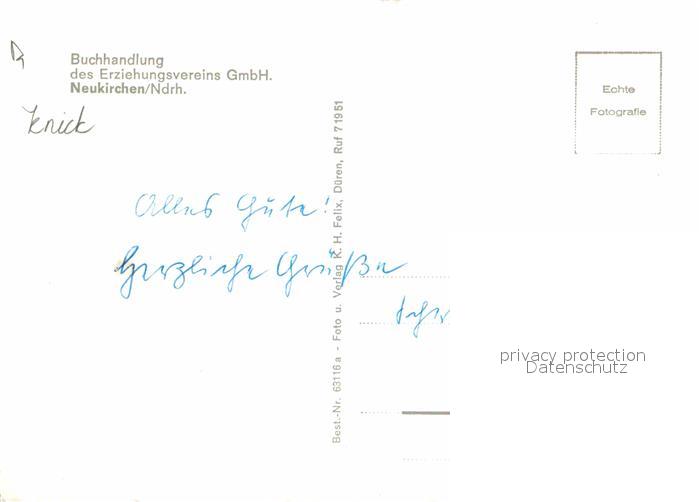 Buchhandlung
des Erziehungsvereins GmbH.
Neukirchen/Ndrh.
Knick
Echte
Fotografie
Alles Gute!
Herzliche Grüße
Best.-Nr. 63116a - Foto u. Verlag K. H. Felix, Düren, Ruf 71951
privacy protection
Datenschutz